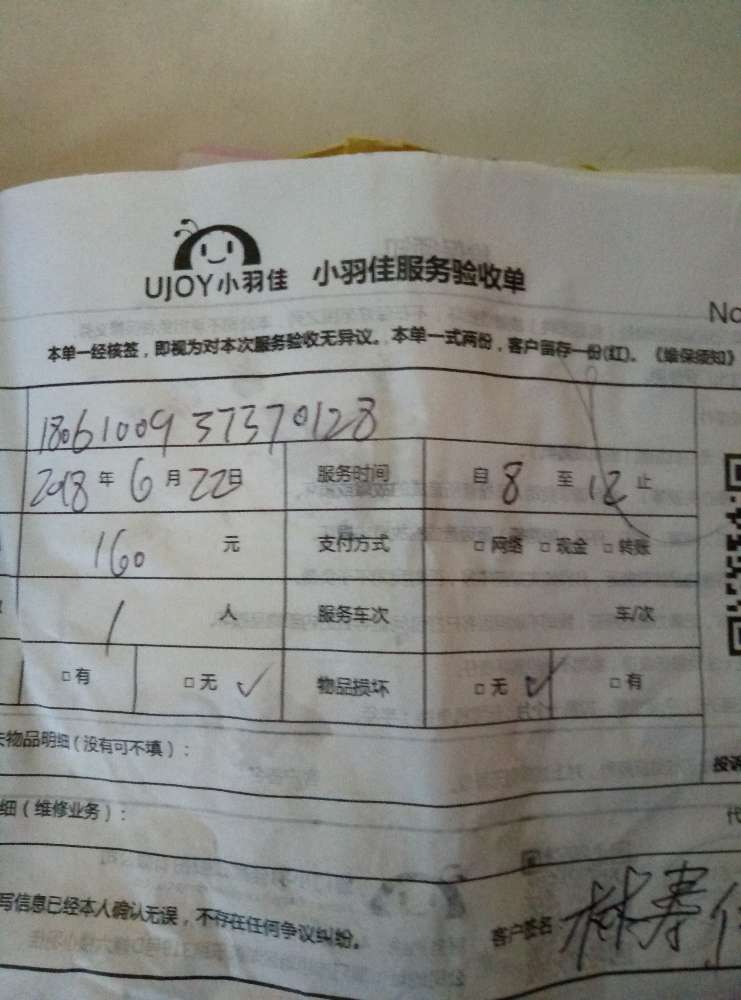 UJOY小羽佳 小羽佳服务验收单
No
本单一经核签，即视为对本次服务验收无异议。本单一式两份，客户留存一份(红)。《维保须知》
1806100937370128
2018 年 6 月 22 日 服务时间 自 8 至 12 止
160 元 支付方式 □ 网络 □ 现金 □ 转账
1 人 服务车次 车/次
□ 有 □ 无 ✓ 物品损坏 □ 无 ✓ □ 有
物品明细（没有可不填）：
投诉
细（维修业务）：
代
写信息已经本人确认无误，不存在任何争议纠纷。 客户签名: 林寿